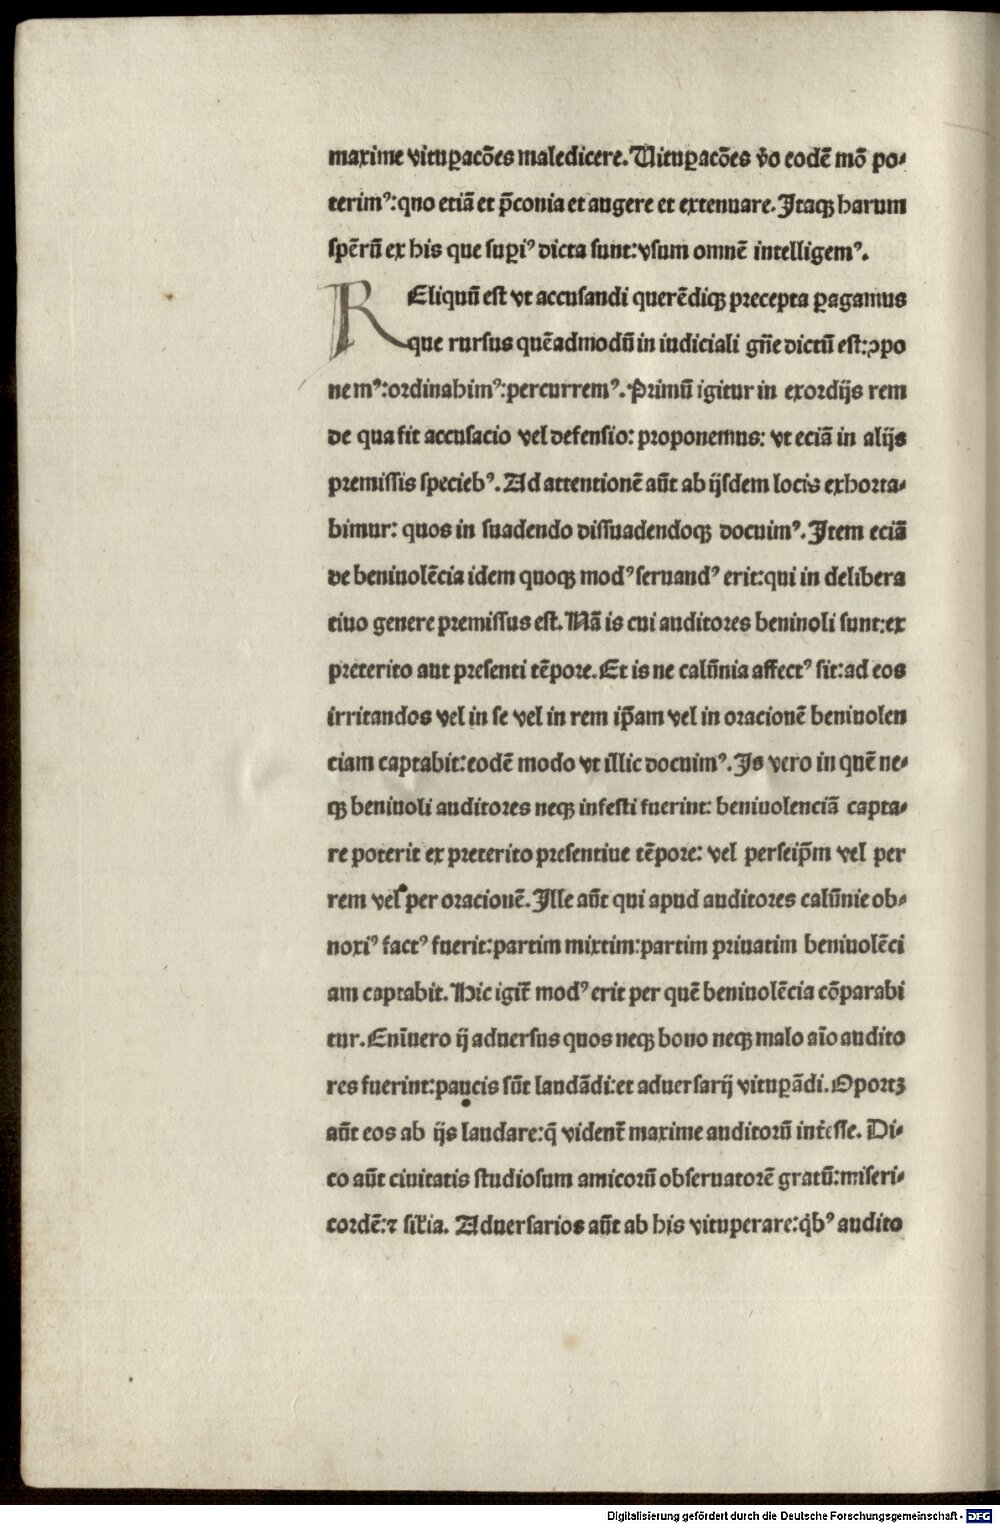 maxime vituꝑacōes maledicere. Vituꝑacōes v̄o eodē mō po⸗
terimꝰ: quo etiā et p̄conia et augere et extenuare. Itaqꝫ harum
spērū ex his que suꝑiꝰ dicta sunt: vsum omnē intelligemꝰ.
REliquū est vt accusandi querēdiqꝫ precepta ꝑagamus
que rursus quēadmodū in iudiciali gn̄e dictū est: ꝓpo
nemꝰ: ordinabimꝰ: percurremꝰ. Primū igitur in exordijs rem
de qua fit accusacio vel defensio: proponemus: vt eciā in alijs
premissis speciebꝰ. Ad attentionē aūt ab ijsdem locis exhorta⸗
bimur: quos in suadendo dissuadendoqꝫ docuimꝰ. Item eciā
de beniuolēcia idem quoqꝫ modꝰ seruandꝰ erit: qui in delibera
tiuo genere premissus est. Nā is cui auditores beniuoli sunt: ex
preterito aut presenti tēpore. Et is ne calūnia affectꝰ sit: ad eos
irritandos vel in se vel in rem ip̄am vel in oracionē beniuolen
ciam captabit: eodē modo vt illic docuimꝰ. Is vero in quē ne⸗
qꝫ beniuoli auditores neqꝫ infesti fuerint: beniuolenciā capta⸗
re poterit ex preterito presentiue tēpore: vel perseip̄m vel per
rem vel per oracionē. Ille aūt qui apud auditores calūnie ob⸗
noxiꝰ factꝰ fuerit: partim mixtim: partim priuatim beniuolēci
am captabit. Hic igit̄ modꝰ erit per quē beniuolēcia cōparabi
tur. Enīuero ij aduersus quos neqꝫ bono neqꝫ malo aīo audito
res fuerint: paucis sūt laudādi: et aduersarij vituꝑādi. Oportꝫ
aūt eos ab ijs laudare: q̄ vident̄ maxime auditorū int̄esse. Di⸗
co aūt ciuitatis studiosum amicorū obseruatorē gratū: miseri⸗
cordē: ⁊ sil̄ia. Aduersarios aūt ab his vituperare: qͥbꝰ audito
Digitalisierung gefördert durch die Deutsche Forschungsgemeinschaft - DFG